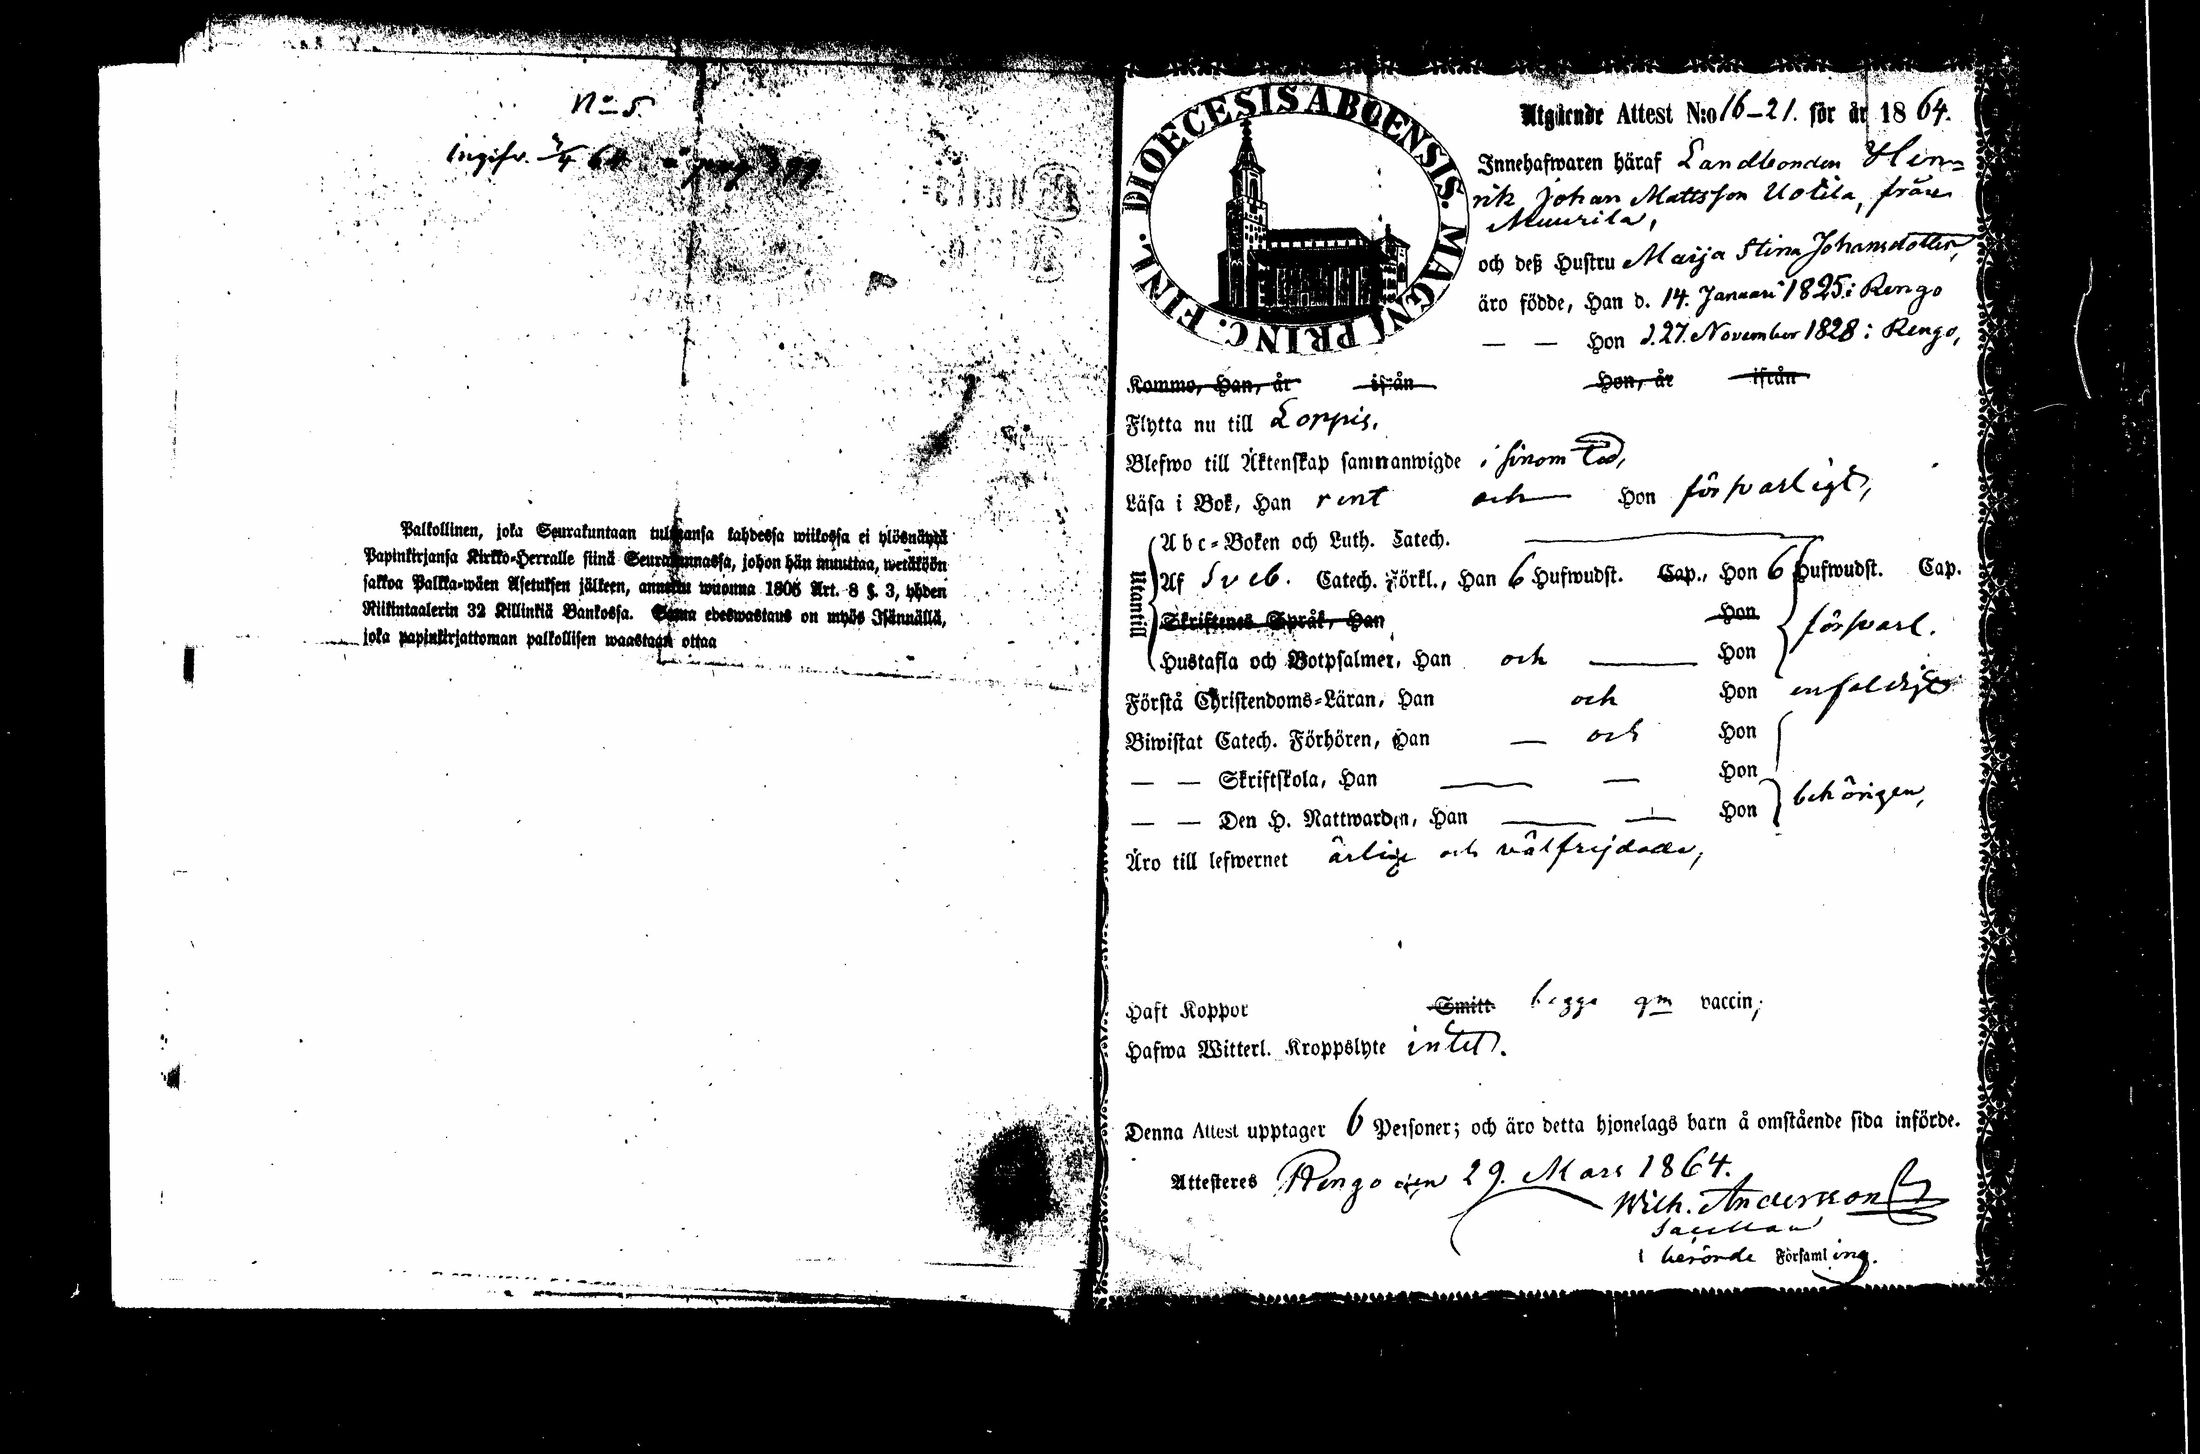 No 5.
Ingifv. 2/4 64 pag 399
Palkollinen, joka Seurakuntaan tultuansa kahdessa wiikossa ei ylösnäytä
Papinkirjansa Kirkko-Herralle siinä Seurakunnassa, johon hän muuttaa, wetäköön
sakkoa Palkka-wäen Asetuksen jälkeen, annettu wuonna 1805 Art. 8 §. 3, yhden
Riikintaalerin 32 Killinkiä Bankossa. Sama edeswastaus on myös Isännällä,
joka papinkirjattoman palkollisen waastaan ottaa
DIOECESIS ABOENSIS. MAGNI PRINC. FINL.
Utgående Attest N:o 16-21. för år 1864.
Innehafwaren häraf Landbonden Hen=
rik Johan Mattsson Uotila, från
Muurila,
och deß Hustru Maija Stina Johansdotter,
äro födde, Han d. 14. Januari 1825 i Rengo
— — Hon d. 27. November 1828 i Rengo,
Kommo, Han, år ifrån Hon, år ifrån
Flytta nu till Loppis.
Blefwo till Äktenskap sammanwigde i sinom tid,
Läsa i Bok, Han rent och Hon försvarligt,
Utantill
Abc-Boken och Luth. Catech.
Af Sveb. Catech. Förkl., Han 6 Hufwudst. Cap., Hon 6 Hufwudst. Cap.
Skriftenes Språk, Han Hon
försvarl.
Hustafla och Botpsalmer, Han och — Hon
Förstå Christendoms-Läran, Han och Hon enfaldigt
Biwistat Catech. Förhören, Han — och Hon
— — Skriftskola, Han — — Hon
behörigen,
— — Den H. Nattwarden, Han — — Hon
Äro till lefwernet ärlige och välfrejdade,
Haft Koppor Smitt begge gm vaccin;
Hafwa Witterl. Kroppslyte intet.
Denna Attest upptager 6 Personer; och äro detta hjonelags barn å omstående sida införde.
Attesteres Rengo den 29. Mars 1864.
Wilh. Andersson
Sacellan
i berörde Församling.